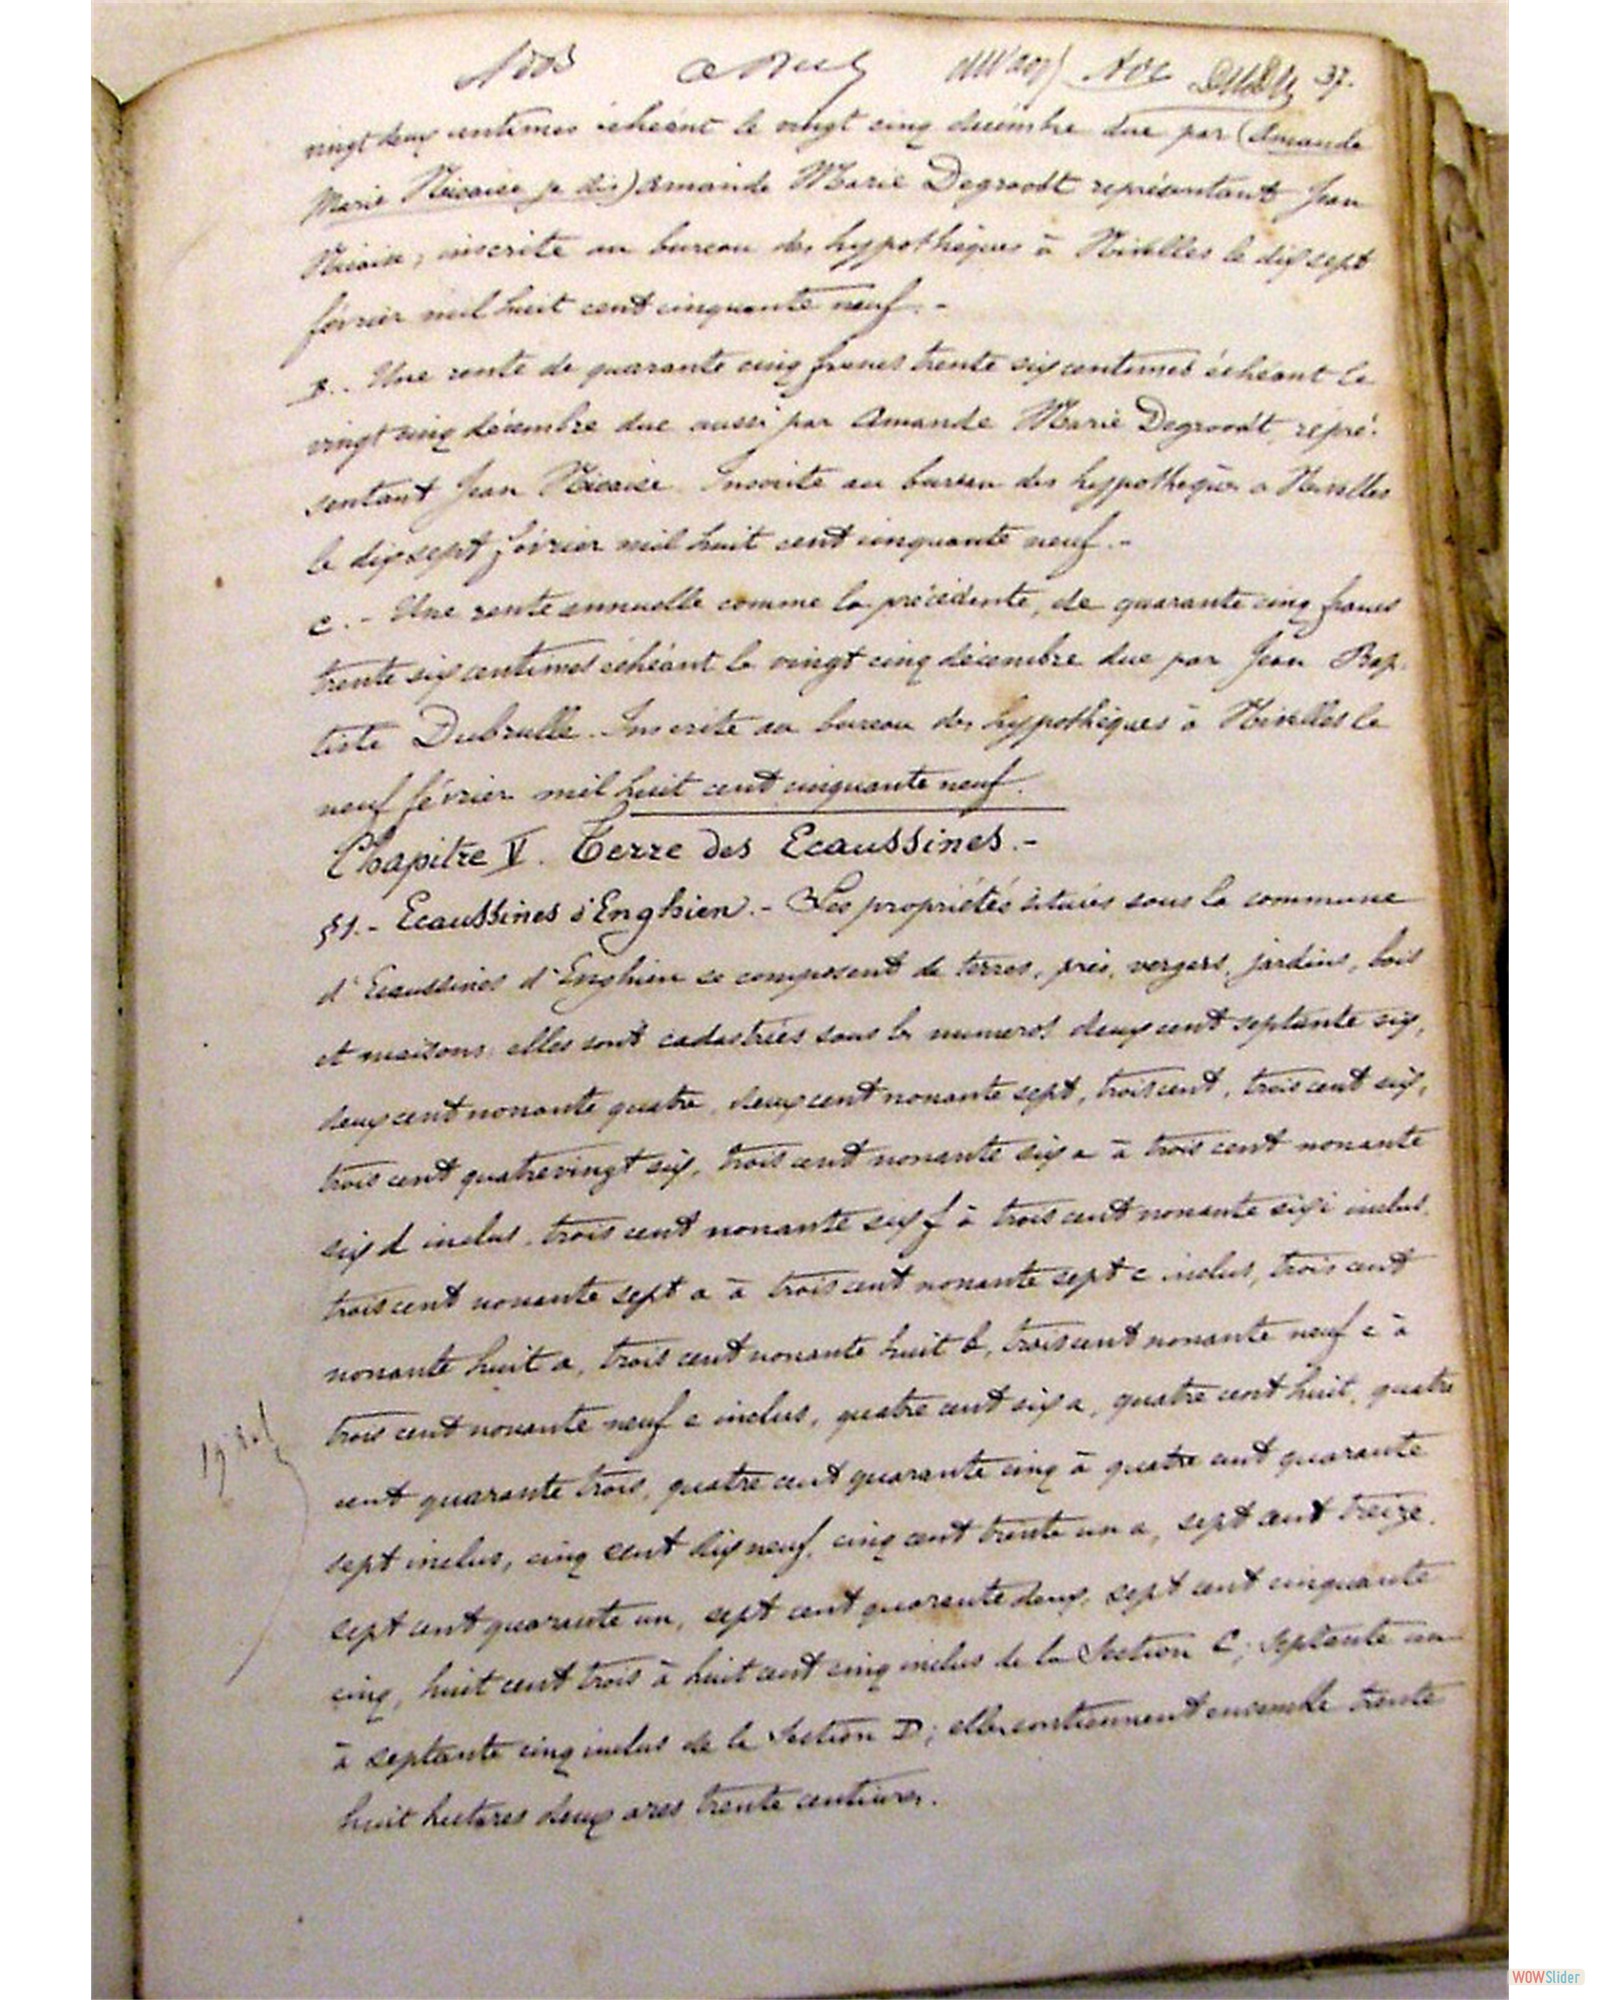 37.
vingt deux centimes échéant le vingt cinq décembre due par (Amande
Marie Nicaise je dis) Amande Marie Degroodt représentant Jean
Nicaise, inscrite au bureau des hypothèques à Nivelles le dix sept
février mil huit cent cinquante neuf. -
B. - Une rente de quarante cinq francs trente six centimes échéant le
vingt cinq décembre due aussi par Amande Marie Degroodt, repré-
sentant Jean Nicaise. Inscrite au bureau des hypothèques à Nivelles
le dix sept février mil huit cent cinquante neuf. -
C. - Une rente annuelle comme la précédente, de quarante cinq francs
trente six centimes échéant le vingt cinq décembre due par Jean Bap-
tiste Dubrulle. Inscrite au bureau des hypothèques à Nivelles le
neuf février mil huit cent cinquante neuf.
Chapitre V. Terre des Ecaussines. -
§1. - Ecaussines d'Enghien. - Les propriétés situées sous la commune
d'Ecaussines d'Enghien se composent de terres, prés, vergers, jardins, bois
et maisons; elles sont cadastrées sous les numeros deux cent septante six,
deux cent nonante quatre, deux cent nonante sept, trois cent, trois cent six,
trois cent quatre vingt six, trois cent nonante six a à trois cent nonante
six d inclus, trois cent nonante six f à trois cent nonante six i inclus,
trois cent nonante sept a à trois cent nonante sept c inclus, trois cent
nonante huit a, trois cent nonante huit b, trois cent nonante neuf c à
trois cent nonante neuf e inclus, quatre cent six a, quatre cent huit, quatre
cent quarante trois, quatre cent quarante cinq à quatre cent quarante
sept inclus, cinq cent dix neuf, cinq cent trente un a, sept cent treize,
sept cent quarante un, sept cent quarante deux, sept cent cinquante
cinq, huit cent trois à huit cent cinq inclus de la Section C; septante un
à septante cinq inclus de la Section D; elles contiennent ensemble trente
huit hectares deux ares trente centiares.
WOWSlider